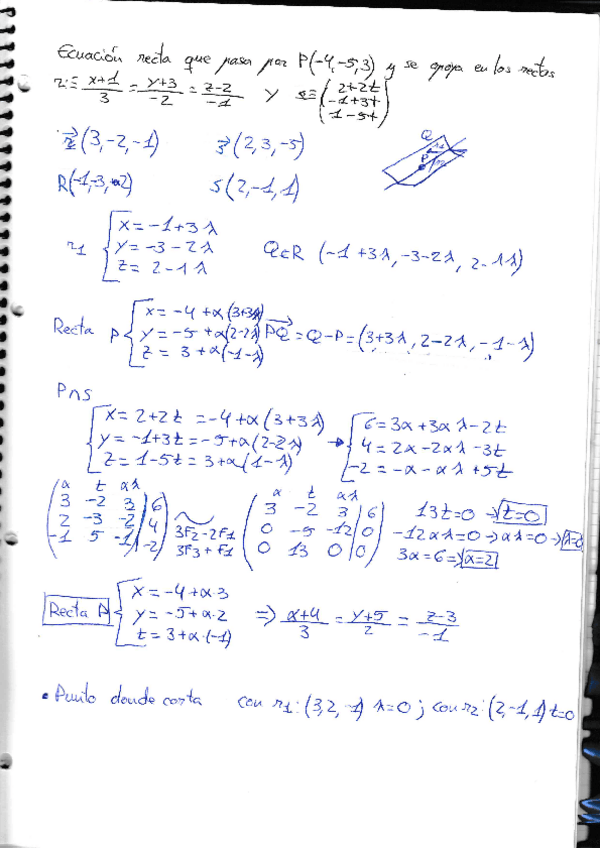 Ecuación recta que pasa por P(-4,-5,3) y se apoya en las rectas
r ≡ x+1/3 = y+3/-2 = z-2/-1 y s ≡ (2+2t
-1+3t
1-5t)
r(3,-2,-1) s(2,3,-5)
Q
P
R(-1,-3,2) S(2,-1,1)
r1 { x = -1+3λ
y = -3-2λ
z = 2-1λ
Q∈R (-1+3λ, -3-2λ, 2-1λ)
Recta P { x = -4+α(3+3λ)
y = -5+α(2-2λ)
z = 3+α(-1-λ)
PQ = Q-P = (3+3λ, 2-2λ, -1-λ)
P∩S
{ x = 2+2t = -4+α(3+3λ)
y = -1+3t = -5+α(2-2λ)
z = 1-5t = 3+α(-1-λ)
→ { 6 = 3α+3αλ-2t
4 = 2α-2αλ-3t
-2 = -α-αλ+5t
α t αλ
3 -2 3 | 6
2 -3 -2 | 4
-1 5 -1 | -2
3F2-2F1
3F3+F1
α t αλ
3 -2 3 | 6
0 -5 -12 | 0
0 13 0 | 0
13t=0 → t=0
-12αλ=0 → αλ=0 → λ=0
3α=6 → α=2
Recta P { x = -4+α·3
y = -5+α·2
z = 3+α·(-1)
⇒ x+4/3 = y+5/2 = z-3/-1
• Punto donde corta con r1: (3,2,-1) λ=0 ; con r2: (2,-1,1) t=0